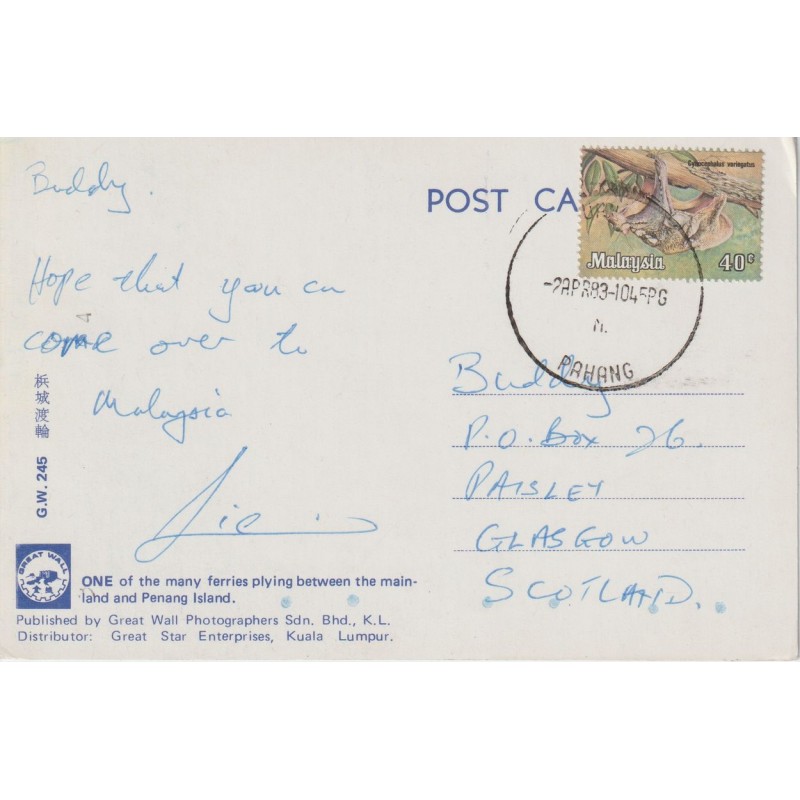 Buddy.
Hope that you can
come over to
Malaysia
POST CA
Cynocephalus variegatus
Malaysia 40c
-2APR83-1045PG
PAHANG
Buddy
P.O. Box 26.
PAISLEY
GLASGOW
SCOTLAND.
梹城渡輪
G.W. 245
GREAT WALL
ONE of the many ferries plying between the main-
land and Penang Island.
Published by Great Wall Photographers Sdn. Bhd., K.L.
Distributor: Great Star Enterprises, Kuala Lumpur.